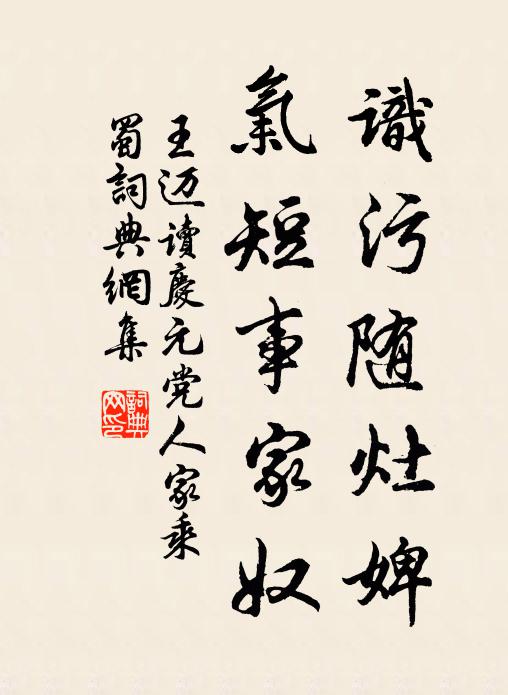 識污随灶婢
氣短事家奴
王迈讀慶元党人家乘
蜀詞典網集
詞典网印